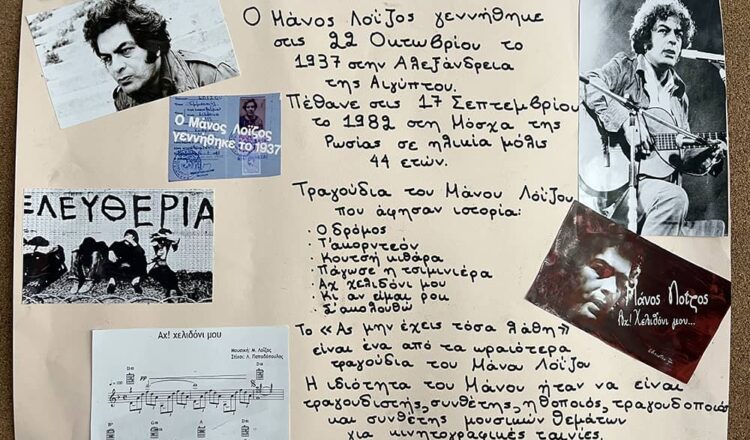 Ο Μάνος Λοΐζος γεννήθηκε
στις 22 Οκτωβρίου το
1937 στην Αλεξάνδρεια
της Αιγύπτου.
Πέθανε στις 17 Σεπτεμβρίου
το 1982 στη Μόσχα της
Ρωσίας σε ηλικία μόλις
44 ετών.
Ο Μάνος Λοΐζος
γεννήθηκε το 1937
ΕΛΕΥΘΕΡΙΑ
Τραγούδια του Μάνου Λοΐζου
που άφησαν ιστορία:
· Ο δρόμος
· Τ'ακορντεόν
· Κουτσή κιθάρα
· Πάγωσε η τσιμινιέρα
· Αχ χελιδόνι μου
· Κι αν είμαι ροκ
· Σ'ακολουθώ
Μάνος Λοΐζος
Αχ! Χελιδόνι μου...
Το «Ας μην έχεις τόσα λάθη»
είναι ένα από τα ωραιότερα
τραγούδια του Μάνου Λοΐζου
Η ιδιότητα του Μάνου ήταν να είναι
τραγουδιστής, συνθέτης, ηθοποιός, τραγουδοποιός
και συνθέτης μουσικών θεμάτων
για κινηματογραφικές ταινίες.
Αχ! χελιδόνι μου
Μουσική: Μ. Λοΐζος
Στίχοι: Λ. Παπαδόπουλος
pp